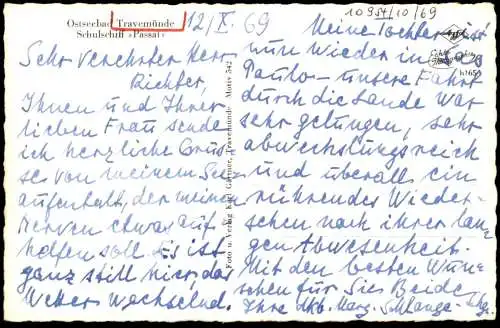 Ostseebad Travemünde
Schulschiff »Passat«
12/X. 69
10954/10/69
Sehr verehrter Herr
Richter,
Ihnen und Ihrer
lieben Frau sende
ich herzliche Grüs-
se von meinem See-
aufenthalt, der meinen
Nerven etwas auf-
helfen soll. Es ist
ganz still hier, das
Wetter wechselnd.
Foto u. Verlag Karl Gärtner, Travemünde Motiv 342
Meine Tochter ist
nun wieder in Sao
Paulo – unsere Fahrt
durch die Lande war
sehr gelungen, sehr
abwechslungsreich
und überall ein
rührendes Wieder-
sehen nach ihrer lan-
gen Abwesenheit.
Mit den besten Wün-
schen für Sie Beide
Ihre Marg. Schlange-